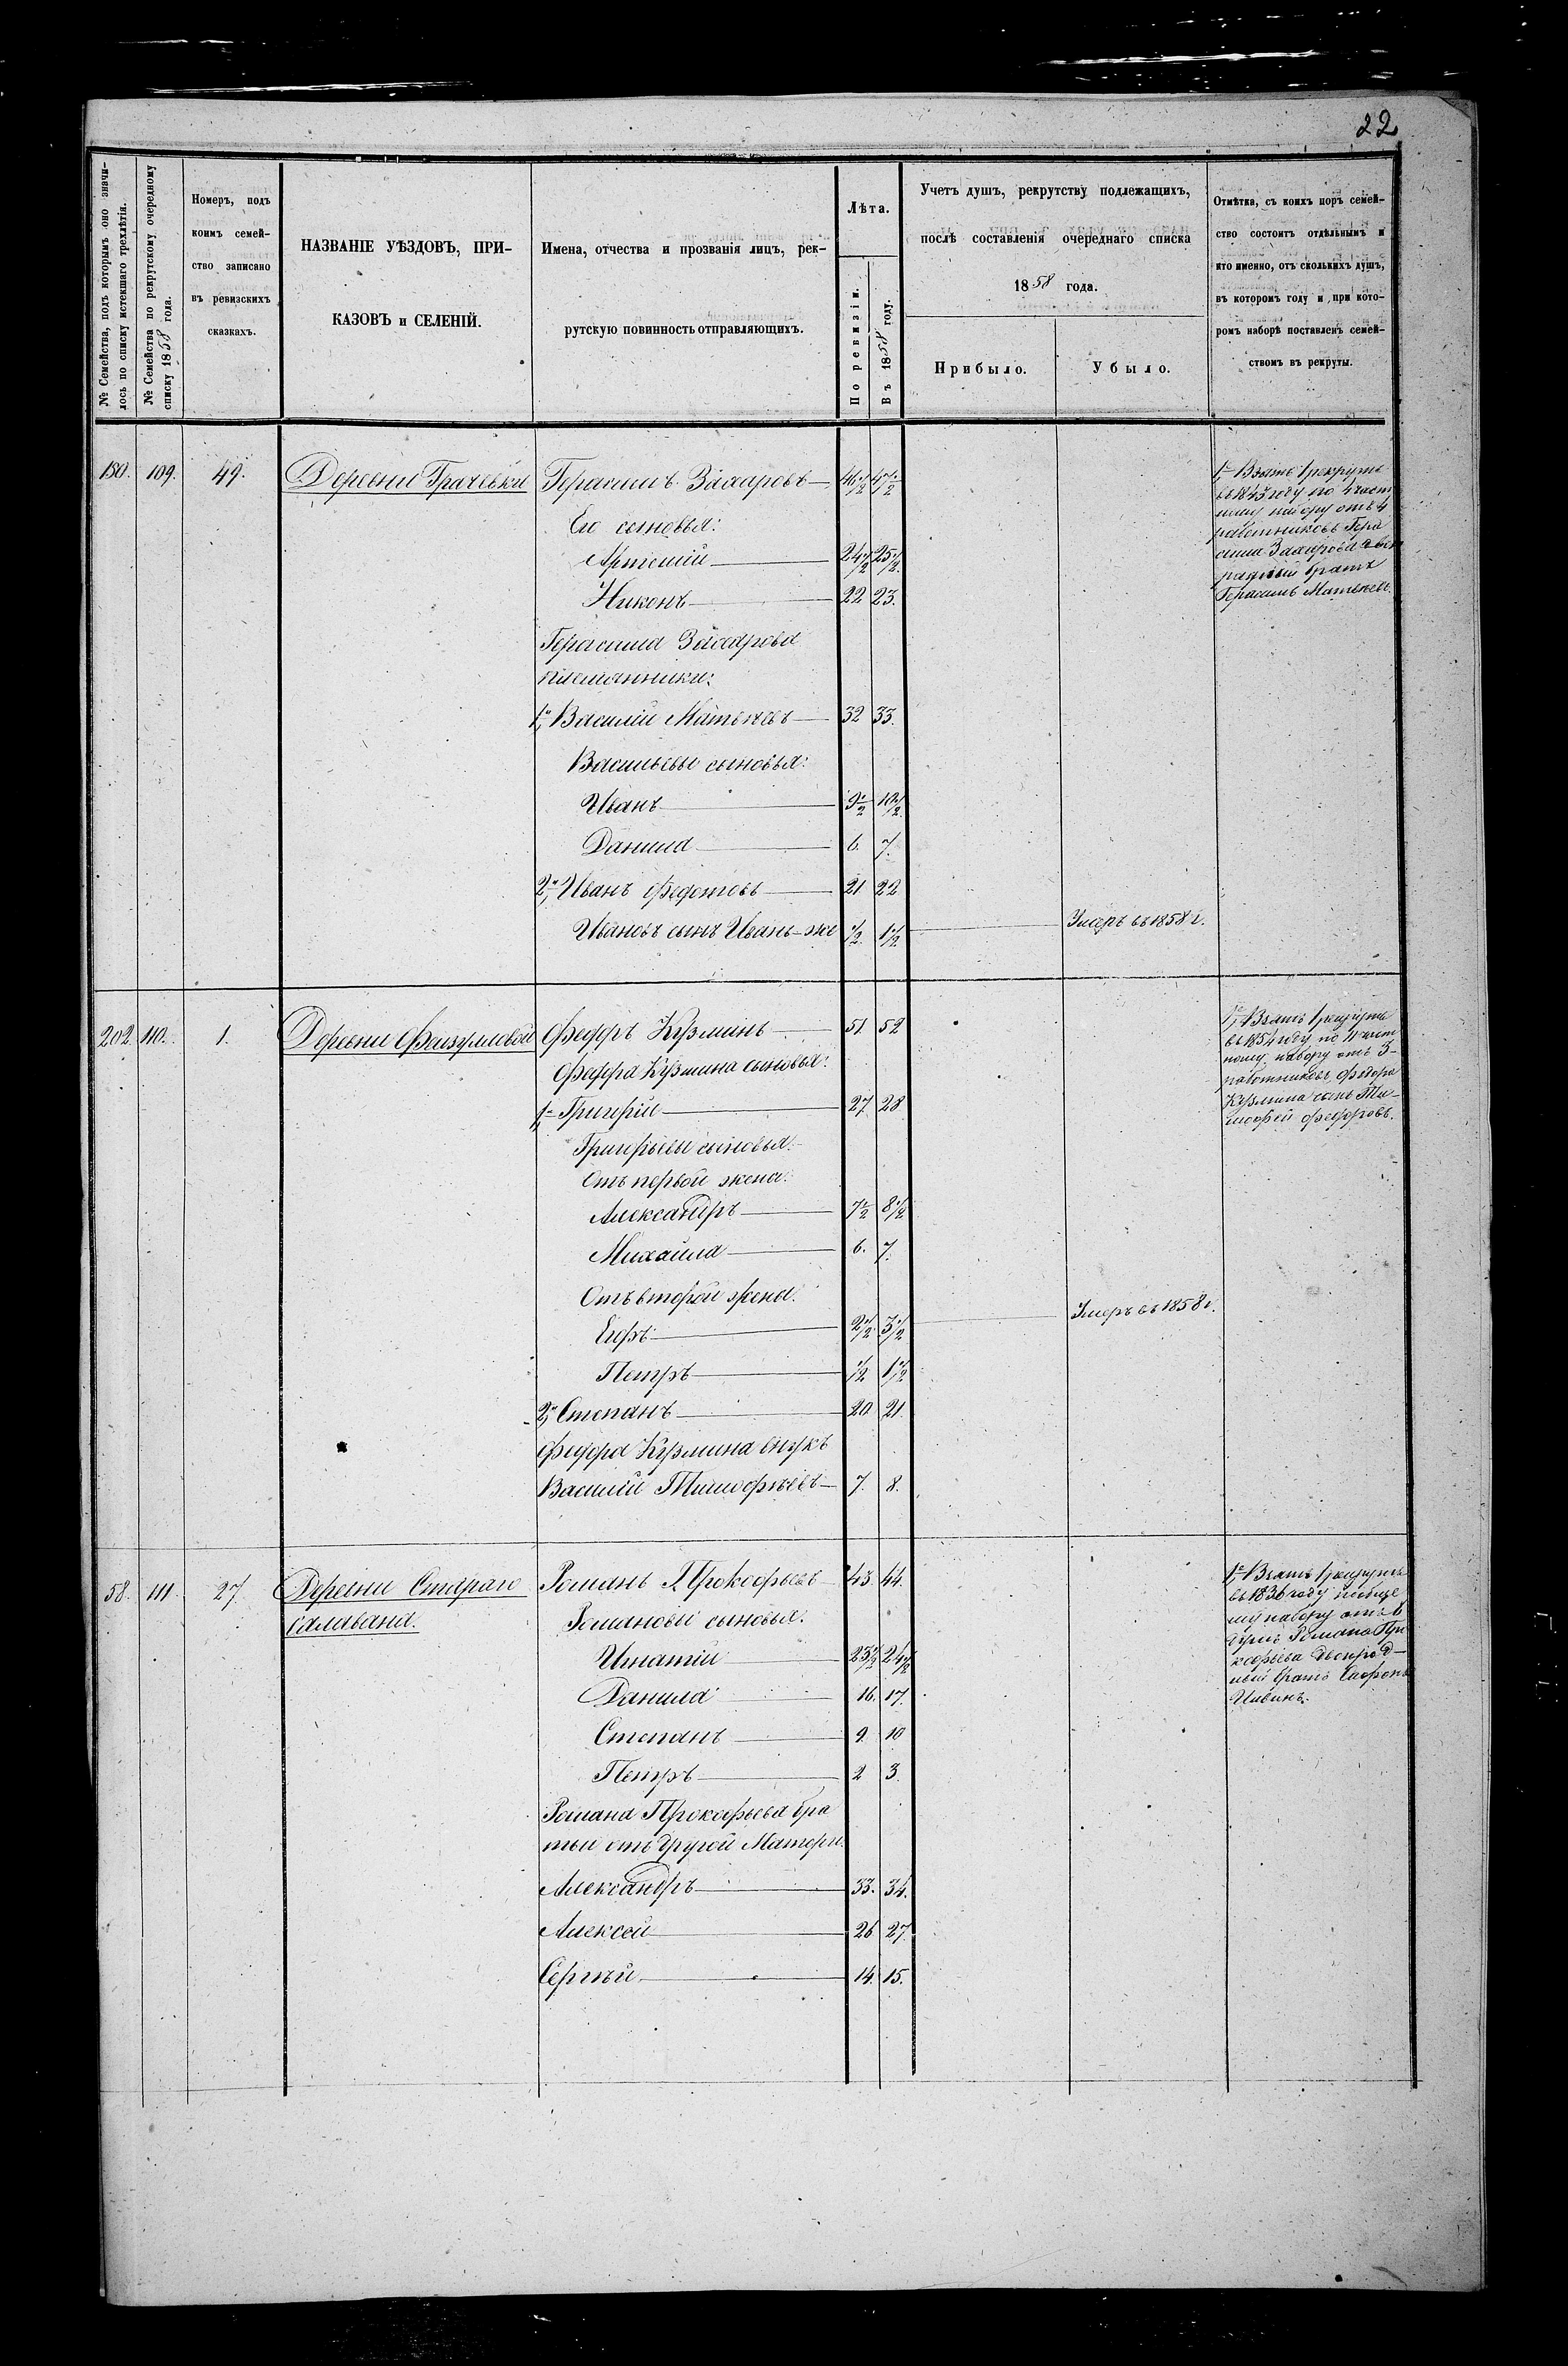 22
№ Семейства, подъ которымъ оно значи-
лось по списку истекшаго трехлѣтія.
№ Семейства по рекрутскому очередному
списку 1858 года.
Номеръ, подъ
коимъ семей-
ство записано
въ ревизскихъ
сказкахъ.
НАЗВАНІЕ УѢЗДОВЪ, ПРИ-
КАЗОВЪ и СЕЛЕНІЙ.
Имена, отчества и прозванія лицъ, рек-
рутскую повинность отправляющихъ.
Лѣта.
По ревизіи.
Въ 1858 году.
Учетъ душъ, рекрутству подлежащихъ,
послѣ составленія очереднаго списка
1858 года.
Прибыло.
Убыло.
Отмѣтка, съ коихъ поръ семей-
ство состоитъ отдѣльнымъ и
кто именно, отъ сколькихъ душъ,
въ которомъ году и при кото-
ромъ наборѣ поставленъ семей-
ствомъ въ рекруты.
180. 109. 49. Деревни Грачевки Герасимъ Захаровъ 46 1/2 47 1/2
Его сыновья:
Артемій 24 1/2 25 1/2
Никонъ 22 23.
Герасима Захарова
племянники:
1, Василій Матвѣевъ 32 33.
Васильевы сыновья:
Иванъ 9 1/2 10 1/2
Данила 6. 7.
2, Иванъ Федотовъ 21 22
Ивановъ сынъ Иванъ-же 1/2 1 1/2 Умеръ въ 1858 г.
1, Взятъ въ рекруты
въ 1843 году по 4 част
ному набору отъ 4
работниковъ Гера
сима Захарова
братъ
Герасимъ Матвѣевъ.
202. 110. 1. Деревни Федоръ Кузминъ 51 52
Федора Кузмина сыновья:
1, Григорій 27 28
Григорьевы сыновья:
Отъ первой жены:
Александръ 7 1/2 8 1/2
Михайла 6. 7.
Отъ второй жены:
Егоръ 2 1/2 3 1/2 Умеръ въ 1858 г.
Петръ 1/2 1 1/2
2, Степанъ 20 21.
Федора Кузмина внукъ
Василій Тимофѣевъ 7. 8.
1, Взятъ въ рекруты
въ 1854 году по 11 част
ному набору отъ 3-
работниковъ Федора
Кузмина сынъ Ти-
мофей Федоровъ.
58. 111. 27. Деревни Стараго Романъ Прокофьевъ 43. 44.
Салавана.
Романовы сыновья:
Игнатій 23 1/2 24 1/2
Данила 16. 17.
Степанъ 9. 10
Петръ 2 3.
Романа Прокофьева бра
тьи отъ другой Матери
Александръ 33. 34.
Алексей 26 27.
Сергѣй 14. 15.
1, Взятъ въ рекруты
въ 1836 году по обще
му набору отъ 8
душъ Романа Про
кофьева двоюрод-
ный братъ Сафронъ